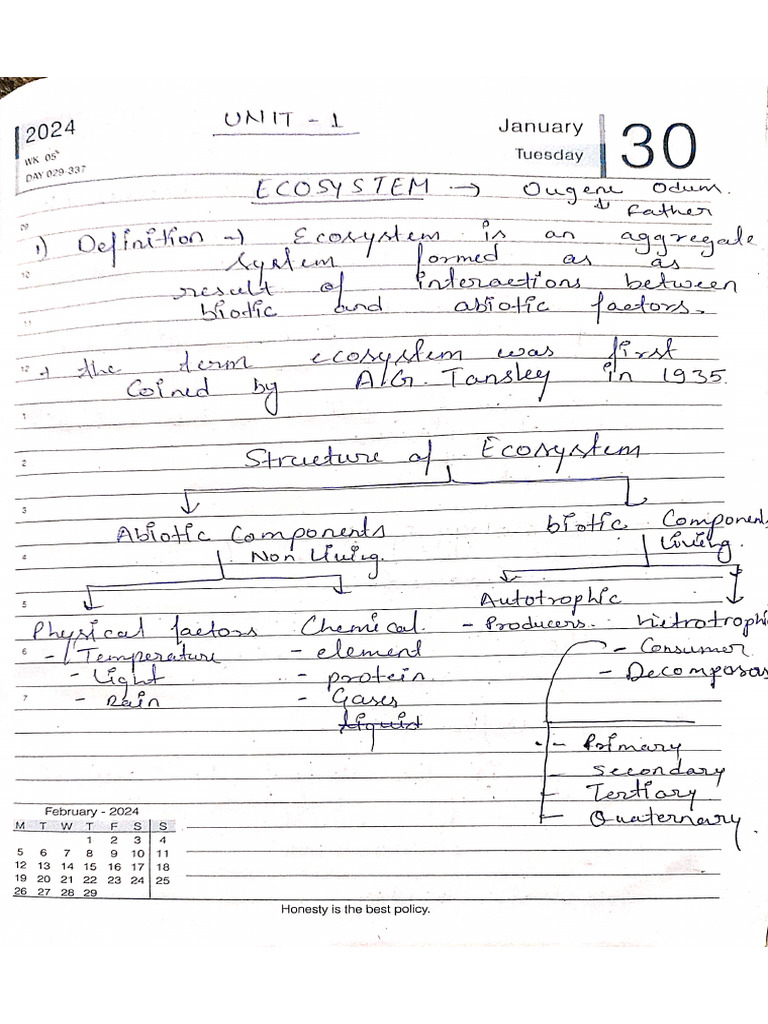 UNIT - 1
2024
January
30
WK 05
Tuesday
DAY 029-337
ECOSYSTEM → Ougene Odum.
↓ Father
09
1) Definition → Ecosystem is an aggregate
10
system formed as as
result of interactions between
11
biotic and abiotic factors.
12
→ the term ecosystem was first
Coined by A.G. Tansley in 1935.
1
2
Structure of Ecosystem
3
Abiotic Components biotic Components
4
Non Living. Living.
5
Autotrophic
Physical factors Chemical. - Producers. Hetrotrophi
6
- Temperature - element - Consumer
- Light - protein. - Decomposas
7
- Rain - Gases
liquid
- Primary
- Secondary
- Tertiary
- Quaternary.
February - 2024
M T W T F S S
1 2 3 4
5 6 7 8 9 10 11
12 13 14 15 16 17 18
19 20 21 22 23 24 25
26 27 28 29
Honesty is the best policy.